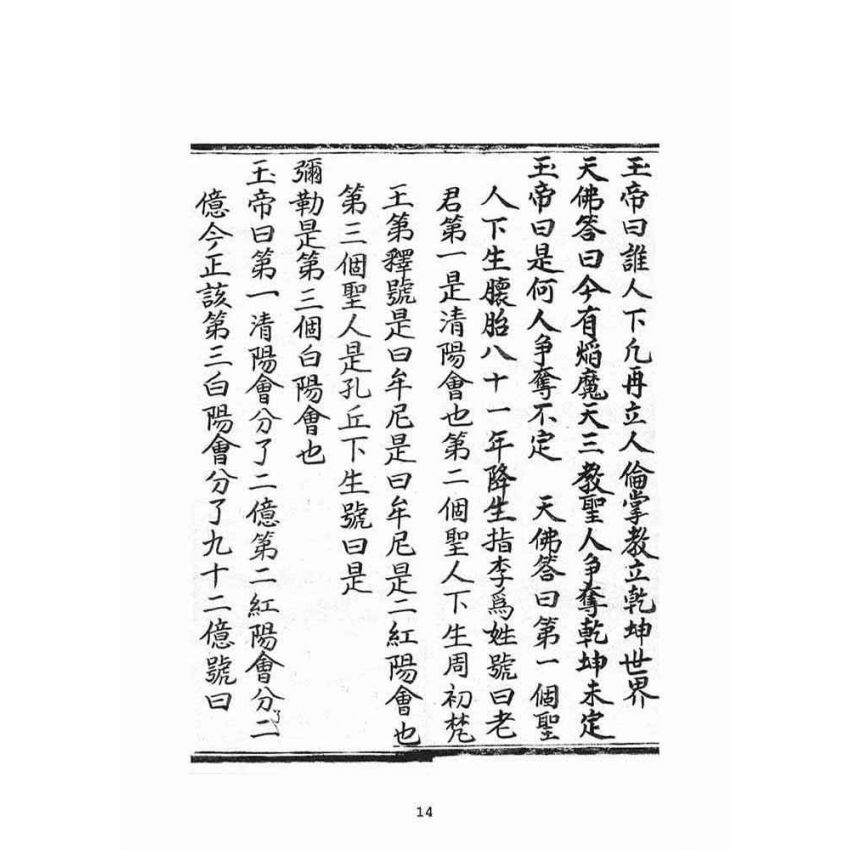 玉帝曰誰人下凢再立人倫掌教立乾坤世界
天佛答曰今有焰魔天三教聖人争奪乾坤未定
玉帝曰是何人争奪不定　天佛答曰第一個聖
人下生腹胎八十一年降生指李爲姓號曰老
君第一是清陽會也第二個聖人下生周初梵
王第釋號是曰牟尼是曰牟尼是二紅陽會也
第三個聖人是孔丘下生號曰是
彌勒是第三個白陽會也
玉帝曰第一清陽會分了二億第二紅陽會分了二
億今正該第三白陽會分了九十二億號曰
14